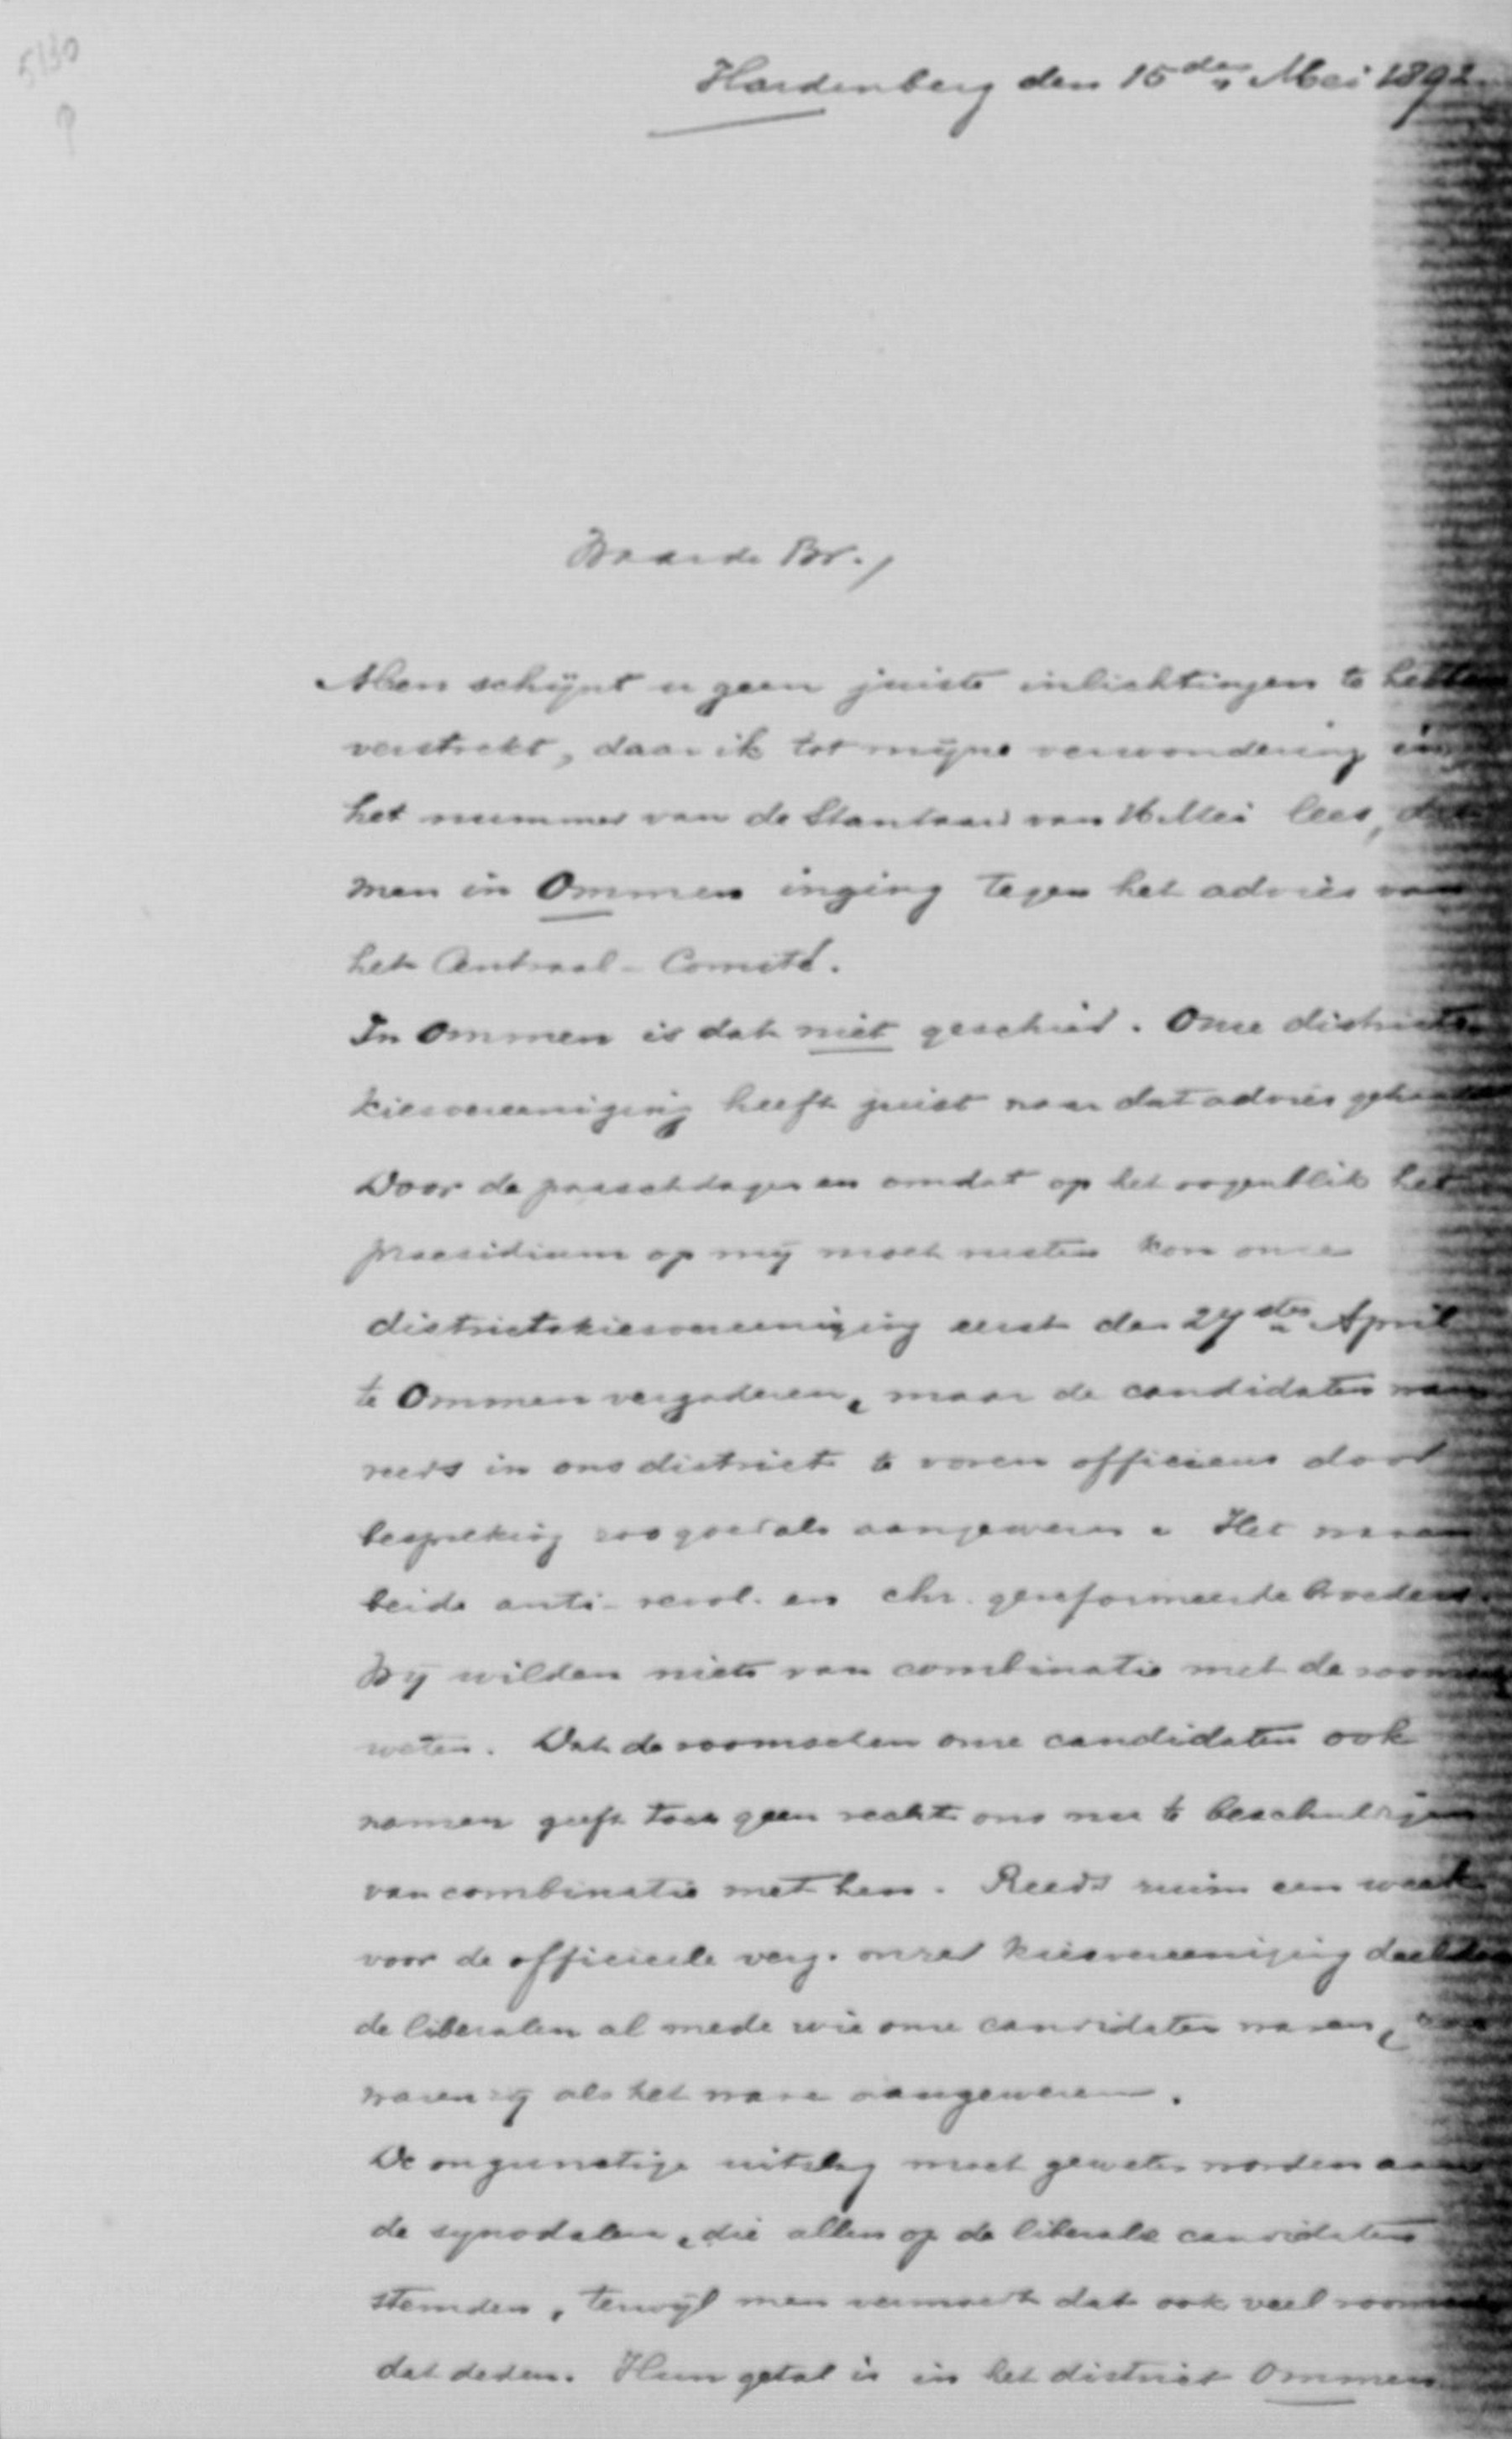 5130
?
Hardenberg den 15den Mei 1892.
Waarde Br.,
Men schijnt u geen juiste inlichtingen te hebben
verstrekt, daar ik tot mijne verwondering in
het nummer van de Stantaard van 16 Mei lees, dat
men in Ommen inging tegen het advies van
het Centraal-Comité.
In Ommen is dat niet geschied. Onze districts
kiesvereeniging heeft juist naar dat advies
Door de paaschdagen en omdat op het oogenblik het
praesidium op mij moet rusten kon onze
districtskiesvereeniging eerst den 27sten April
te Ommen vergaderen, maar de candidaten
reeds in ons district te voren officieus door
bespreking zoo goed als aangewezen. Het waren
beide anti-revol. en chr. gereformeerde broeders.
Wij wilden niets van combinatie met de
weten. Dat de roomschen onze candidaten ook
namen geeft toch geen recht ons nu te beschuldigen
van combinatie met hen. Reeds ruim een week
voor de officieele verg. onzer kiesvereeniging deelden
de liberalen al mede wie onze candidaten waren,
waren zij als het ware aangewezen.
De ongunstige uitslag moet geweten worden aan
de synodalen, die allen op de liberale candidaten
stemden, terwijl men vermoedt dat ook veel
dat deden. Hun getal is in het district Ommen